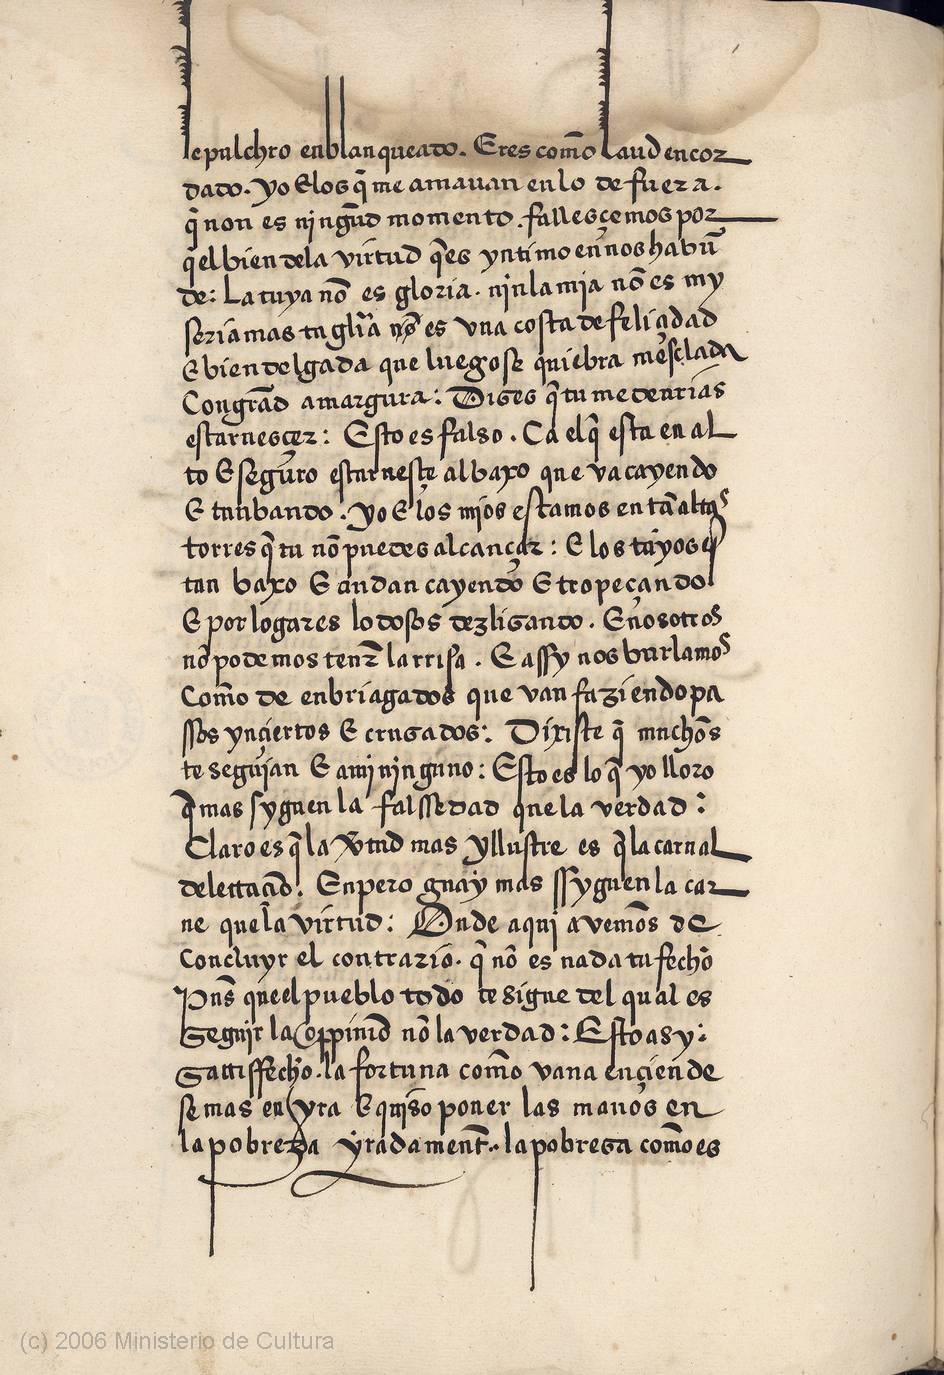 sepulchro enblanqueado. Eres com̃o laud encor
dado. yo E los q̃ me amauan en lo de fuera.
q̃ non es njngũd momento. fallesçemos por
q̃ el bien dela virtud q̃ es yntimo en nos ha vñ
de: La tuya nõ es gloria. njn la mia nõ es my
seria mas tu glĩa es vna costa de feliçidad
E bien delgada que luego se quiebra mesclada
Con grãd amargura: Dises q̃ tu me deurias
escarnesçer: Esto es falso. Ca el q̃ esta en al
to E seguro escarnesçe al baxo que va cayendo
E tunbando. yo E los mjos estamos en tã altas
torres q̃ tu nõ puedes alcançar: E los tuyos
tan baxo E andan cayendo E tropeçando
E por logares lodosos dezligando. E nosotros
nõ podemos tener la rrisa. E assy nos burlamos
Com̃o de enbriagados que van faziendo pa
ssos ynçiertos E crusados: Dixiste q̃ muchos
te seguian E a mj njnguno: Esto es lo q̃ yo lloro
q̃ mas syguen la falssedad que la verdad:
Claro es q̃ la virtud mas yllustre es q̃ la carnal
delectaciõ. Enpero guay mas ssyguen la car
ne que la virtud: Onde aqui avemos de
Concluyr el contrario. q̃ nõ es nada tu fecho
Pues que el pueblo todo te sigue del qual es
Seguir la oppiniõ nõ la verdad: Esto asy
Satisffecho. la fortuna com̃o vana ençiende
se mas en yra E quiso poner las manos en
la pobreza yradament̃. la pobresa com̃o es
(c) 2006 Ministerio de Cultura